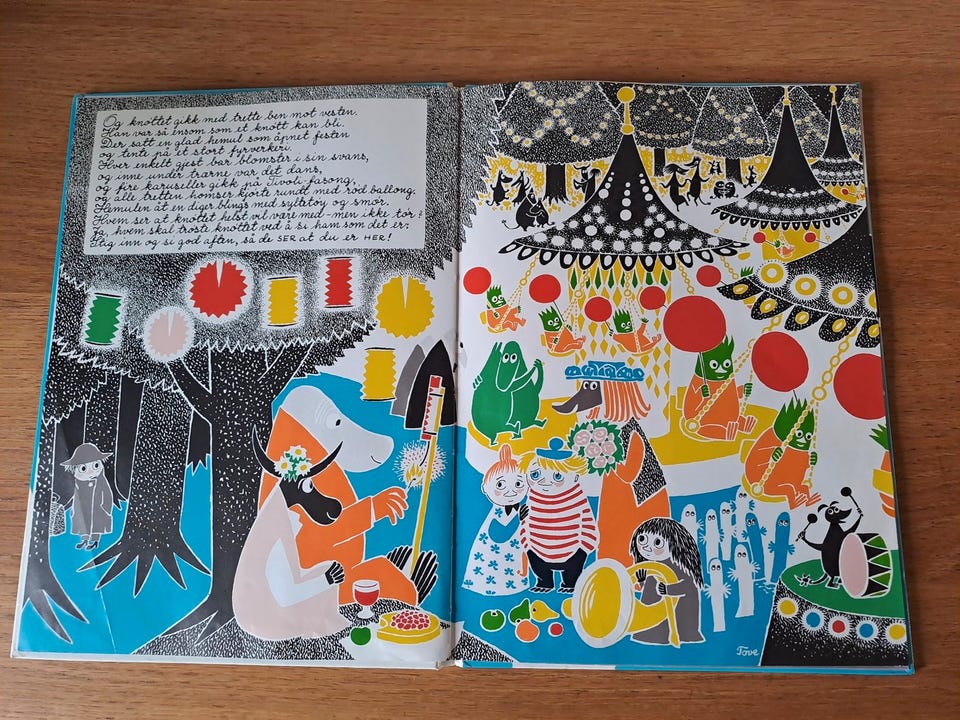 Og knottet gikk med trette ben mot vesten.
Han var så ensom som et knott kan bli.
Der satt en glad hemul som åpnet festen
og tente på et stort fyrverkeri.
Hver enkelt gjest bar blomster i sin svans,
og inne under trærne var det dans,
og fire karuseller gikk på Tivoli-fasong,
og alle tretten homser kjørte rundt med rød ballong.
Hemulen åt en diger blings med syltetøy og smør.
Hvem ser at knottet helst vil være med – men ikke tør?
Ja, hvem skal trøste knottet ved å si ham som det er:
Stig inn og si god aften, så de SER at du er HER!
Tove